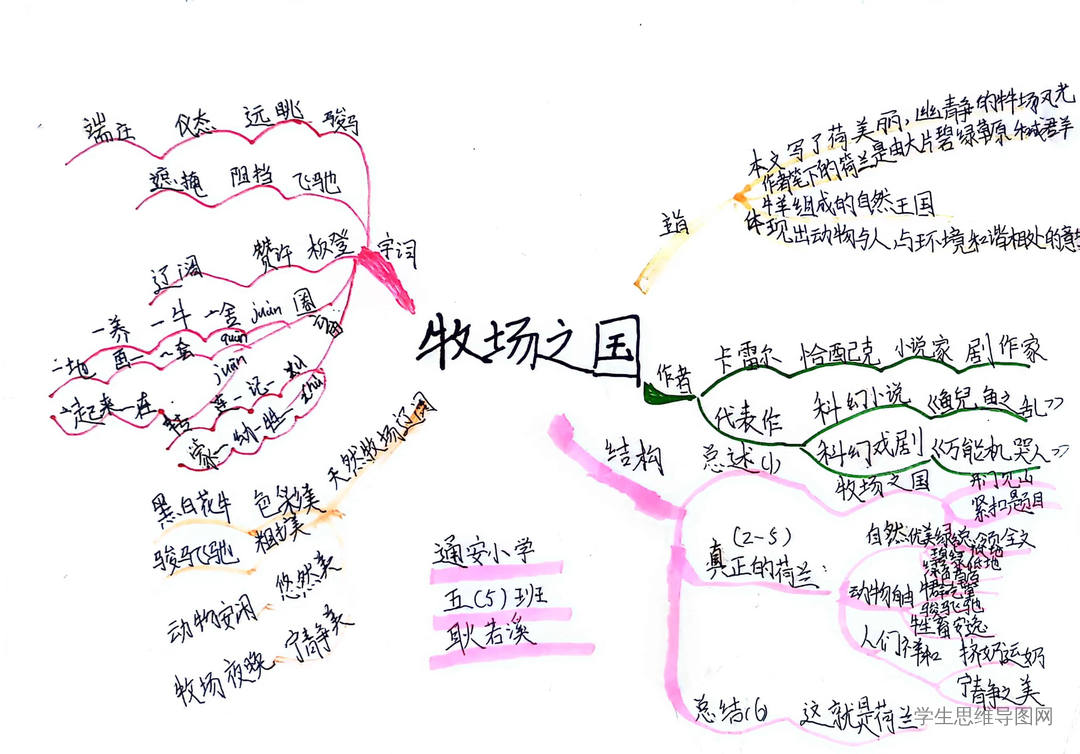 牧场之国
字词
端庄 仪态 远眺 骏马
遮掩 阻挡 飞驰
辽阔 赞许 板凳
养 牛 舍 juàn 圈 
套 quān
起来 在 juān
天然牧场
黑白花牛 色彩美
骏马飞驰 粗犷美
动物安闲 悠然美
牧场夜晚 宁静美
通安小学
五(5)班
耿若溪
主旨
本文写了荷美丽,幽静的牧场风光
作者笔下的荷兰是由大片碧绿草原和成群羊
牛羊组成的自然王国
体现出动物与人,与环境和谐相处的意
作者
卡雷尔 恰配克 小说家 剧作家
代表作
科幻小说 《鱼儿之乱》
科幻戏剧 《万能机器人》
结构
总述(1) 牧场之国 开门见山
紧扣题目
(2-5)
真正的荷兰:
自然优美 绿意
碧绿低地
动物自由 牛群
骏马飞驰
牲畜安逸
人们祥和 挤奶运奶
宁静之美
总结(6) 这就是荷兰
学生思维导图网